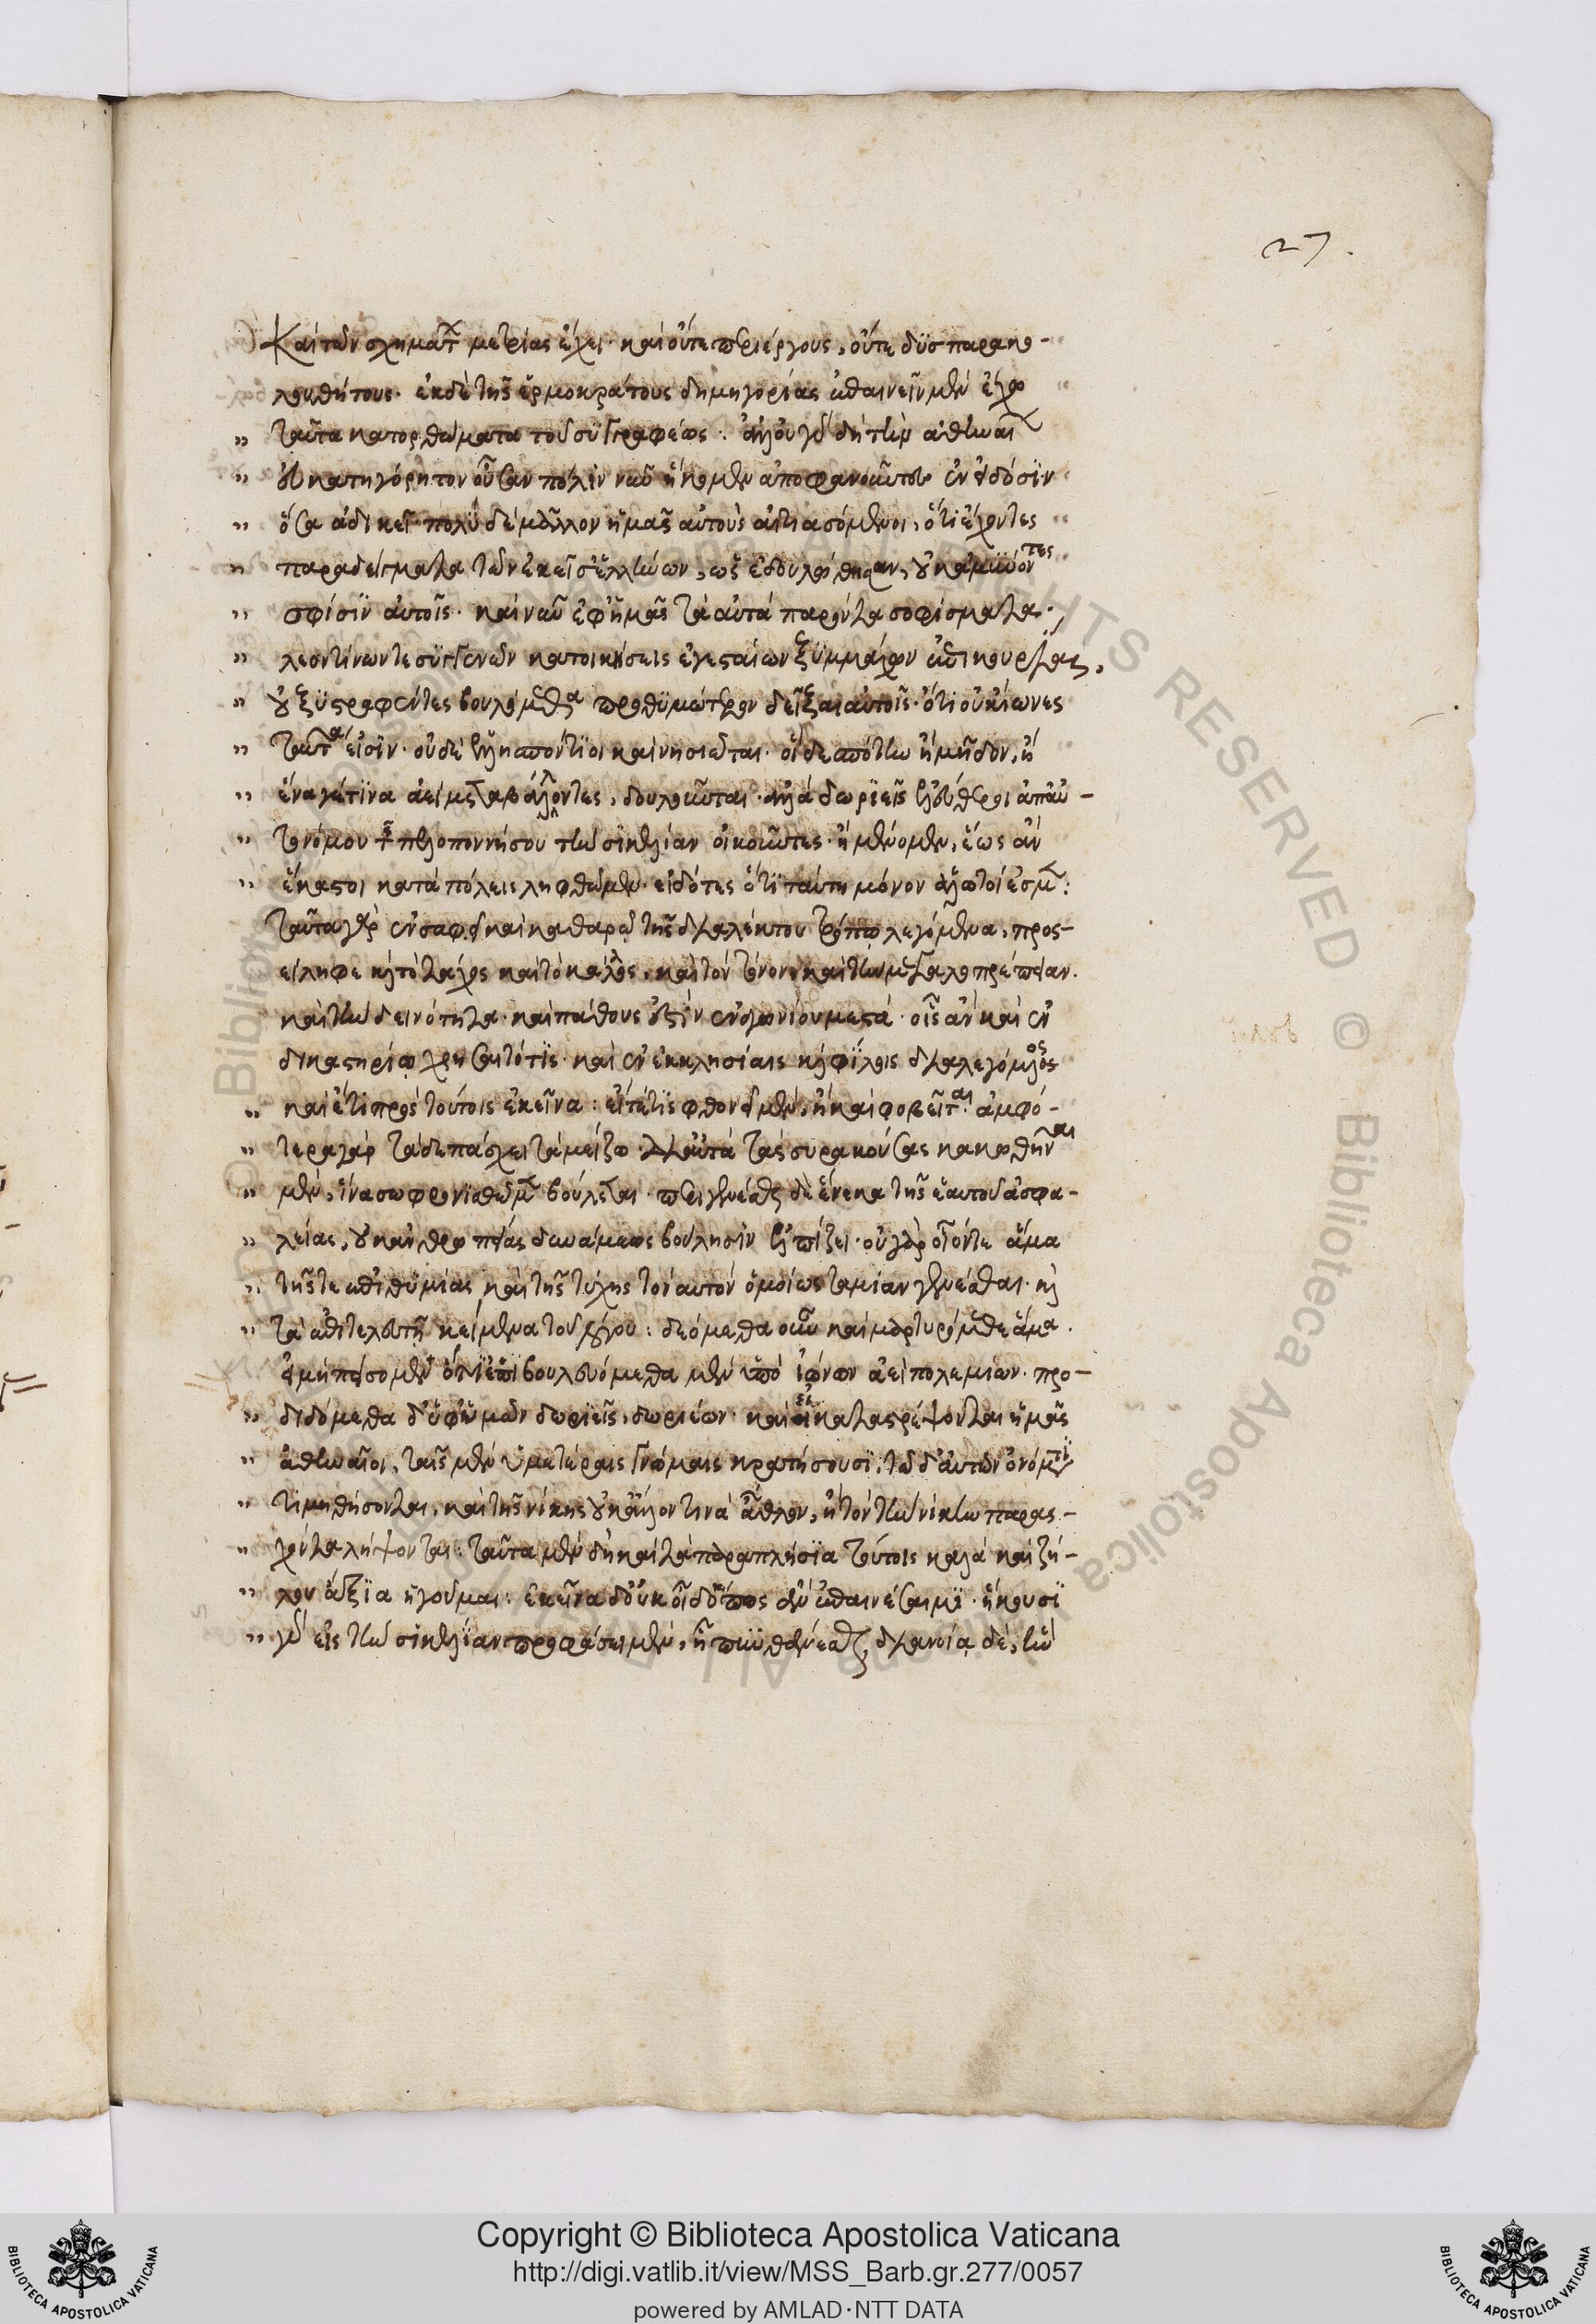 27.
Καὶ τῶν σχηματ μετρίας ἔχει· καὶ οὔτε περιέργους, οὔτε δυσπαρακο-
λουθήτους· ἐκ δὲ τῆς ἑρμοκράτους δημηγορίας ἐπαινεῖν μὲν ἔχω
ταῦτα κατορθώματα τοῦ συγγραφέως: ἀλλ' οὐ γὰρ δὴ τὴν ἀθηναί
εὐκατηγόρητον οὖσαν πόλιν νῦν ἥκομεν ἀποφανοῦντες ἐν εἰδόσιν
ὅσα ἀδικεῖ· πολὺ δὲ μᾶλλον ἡμᾶς αὐτοὺς αἰτιασόμενοι, ὅτι ἔχοντες
παραδείγματα τῶν ἐκεῖσ' ἑλλήνων, ὡς ἐδουλώθησαν, οὐκ ἀμύνοντες
σφίσιν αὐτοῖς· καὶ νῦν ἐφ' ἡμᾶς τὰ αὐτὰ παρόντα σοφίσματα·
λεοντίνων τε συγγενῶν κατοικήσεις ἐγεσταίων ξυμμάχων ἐπικουρίας,
οὐ ξυστραφέντες βουλόμεθα προθυμότερον δεῖξαι αὐτοῖς· ὅτι οὐκ ἴωνες
ταῦτα εἰσίν· οὐδὲ ἑλλησπόντιοι καὶ νησιῶται· οἳ δεσπότην ἢ μῆδον, ἢ
ἕνα γέ τινα ἀεὶ μεταβάλλοντες, δουλοῦνται· ἀλλὰ δωριεῖς ἐλεύθεροι ἀπ' αὐ-
τονόμου τῆς πελοποννήσου τὴν σικελίαν οἰκοῦντες· ἢ μένομεν, ἕως ἂν
ἕκαστοι κατὰ πόλεις ληφθῶμεν· εἰδότες ὅτι ταύτῃ μόνον ἁλωτοί ἐσμ:
ταῦτα γὰρ ἐν σαφεῖ καὶ καθαρῷ τῆς διαλέκτου τρόπῳ λεγόμενα, προσ-
είληφε καὶ τὸ τάχος καὶ τὸ κάλλος, καὶ τὸν τόνον, καὶ τὴν μεγαλοπρέπειαν.
καὶ τὴν δεινότητα· καὶ πάθους ἐστὶν ἐναγωνίου μεστά· οἷς ἂν καὶ ἐν
δικαστηρίῳ χρήσαιτό τις· καὶ ἐν ἐκκλησίαις καὶ φίλοις διαλεγόμενος
καὶ ἔτι πρὸς τούτοις ἐκεῖνα: εἴ τέ τις φθονεῖ μὲν, ἢ καὶ φοβεῖται· ἀμφό-
τερα γὰρ τάδε πάσχει τὰ μείζω· διὰ αὐτὰ τὰς συρακούσας κακωθῆναι
μὲν, ἵνα σωφρονισθῶμ βούλεται· περιγενέσθαι δὲ ἕνεκα τῆς ἑαυτοῦ ἀσφα-
λείας, οὐκ ἀνθρωπείας δυνάμεως βούλησιν ἐλπίζει· οὐ γὰρ οἷόν τε ἅμα
τῆς τε ἐπιθυμίας καὶ τῆς τύχης τὸν αὐτὸν ὁμοίως ταμίαν γενέσθαι· καὶ
τὰ ἐπὶ τελευτῇ κείμενα τοῦ λόγου: δεόμεθα οὖν καὶ μαρτυρόμεθα ἅμα.
εἰ μὴ πείσομεν ὅτι ἐπιβουλευόμεθα μὲν ὑπὸ ἰώνων ἀεὶ πολεμίων· προ-
διδόμεθα δ' ὑφ' ὑμῶν δωριεῖς, δωριέων· καὶ εἰ καταστρέψονται ἡμᾶς
ἀθηναῖοι, ταῖς μὲν ὑμετέραις γνώμαις κρατήσουσι, τῷ δ' αὑτῶν ὀνόματι
τιμηθήσονται, καὶ τῆς νίκης οὐκ ἄλλον τινὰ ἆθλον, ἢ τὸν τὴν νίκην παρασ-
χόντα λήψονται: ταῦτα μὲν δὴ καὶ τὰ παραπλήσια τούτοις καλὰ καὶ ζή-
λου ἄξια ἡγοῦμαι: ἐκεῖνα δ' οὐκ οἶδ' ὅπως ἂν ἐπαινέσαιμι· ἥκουσι
γὰρ εἰς τὴν σικελίαν προφάσει μὲν, ᾗ πυνθάνεσθε, διανοίᾳ δὲ, ἣν
Copyright © Biblioteca Apostolica Vaticana
http://digi.vatlib.it/view/MSS_Barb.gr.277/0057
powered by AMLAD·NTT DATA